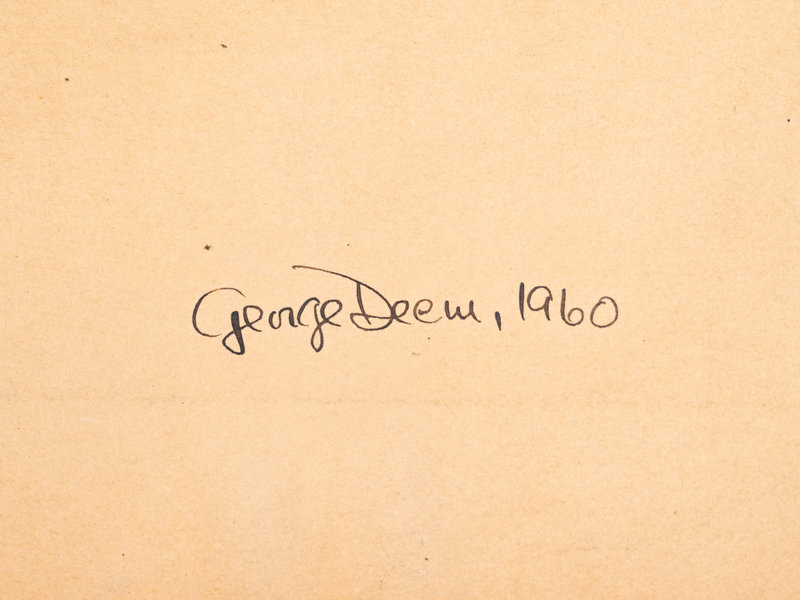 George Deem, 1960